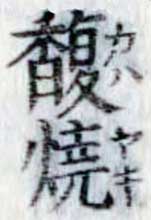 馥焼
カハヤキ